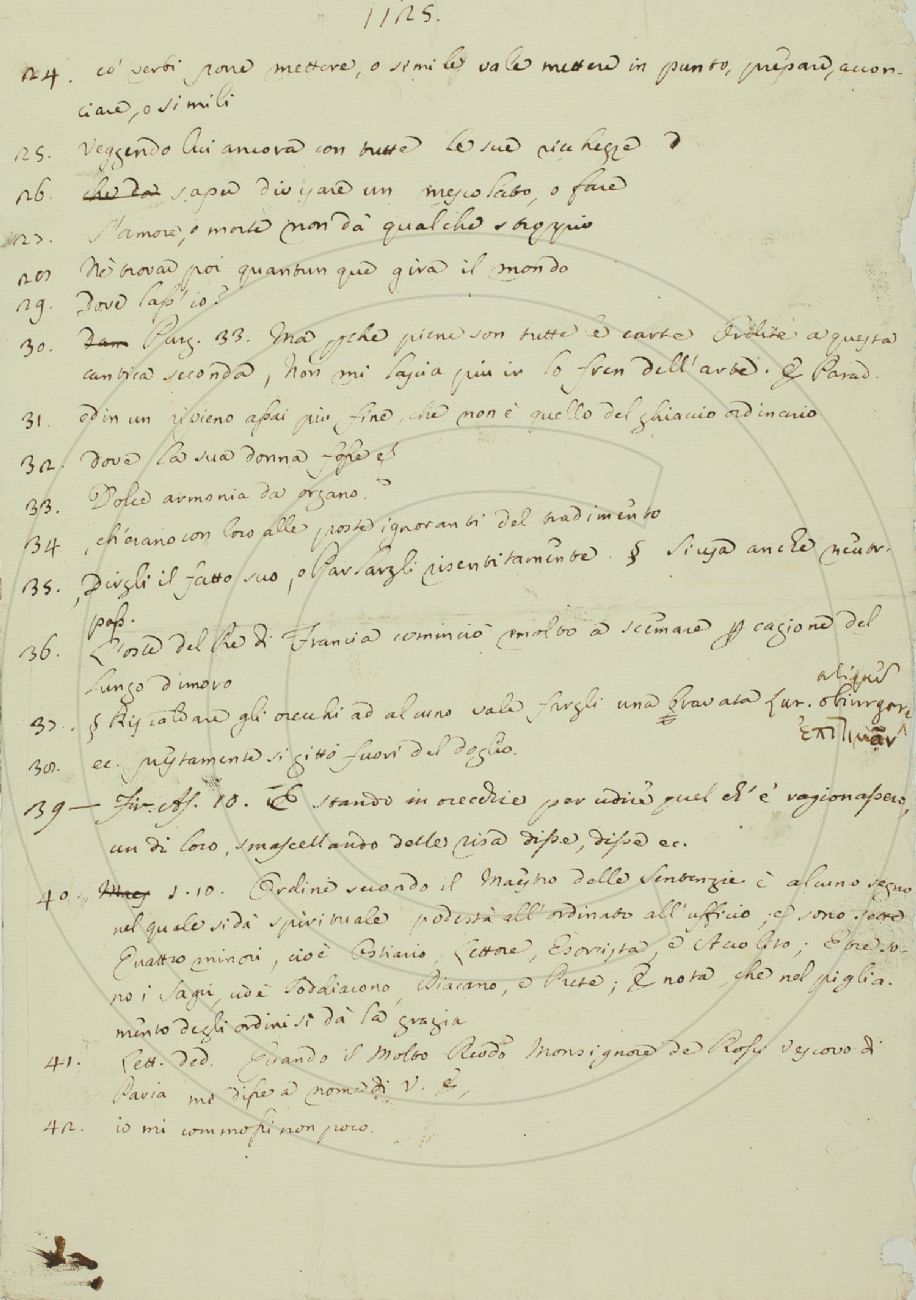 1125.
24. co' verbi porre mettere, o simile vale mettere in punto, prepare, accon-
ciare, o simili
25. Veggendo lui ancora con tutte le sue richezze
26. che da saper divisare un mescolato, o fare
27. S'amore, o morte non dà qualche stroppio
28 Nè trovar poi quantunque gira il mondo
29. Dove lass' io?
30. Dan Purg. 33. Ma pche piene son tutte le carte Ordite a questa
cantica seconda, Non mi lascia più ir lo fren dell'arte. & Parad.
31. ed in un ripieno assai più fine, che non è quello del ghiaccio ordinario
32. Dove la sua donna fosse
33. Dolce armonia da organo.
34 ch'erano con loro alle poste ignoranti del tradimento
35. Dirgli il fatto suo, o Parlargli risentitamente. § Si usa anche neutr.
pass.
36. L'oste del Re di Francia cominciò molto a scemare p cagione del
lungo dimoro
37. § Riscaldare gli orecchi ad alcuno vale fargli una bravata Lat. obiurgare
aliquem
ἐπιτιμᾶν
38. ec. prestamente si gittò fuori del doglio.
39 — Fir. As. 10. E stando in orecchie per udire quel ch' e' ragionassero,
un di loro, smascellando delle risa disse, disse ec.
40. Maes 1.10. Ordine secondo il Maestro delle Sentenzie è alcuno segno
nel quale si dà spirituale podestà all'ordinato all'ufficio, e sono sette
Quattro minori, cioè Ostiario, Lettore, Esorcista, e Accolito; E tre so-
no i Sagri, cioè Soddiacono, Diacano, e Prete; & nota, che nel piglia-
mento degli ordini si dà la grazia
41. Lett. ded. Quando il Molto Revdo Monsignore de Rossi Vescovo di
Pavia mi disse a nome di V. E,
42. io mi commossi non poco.